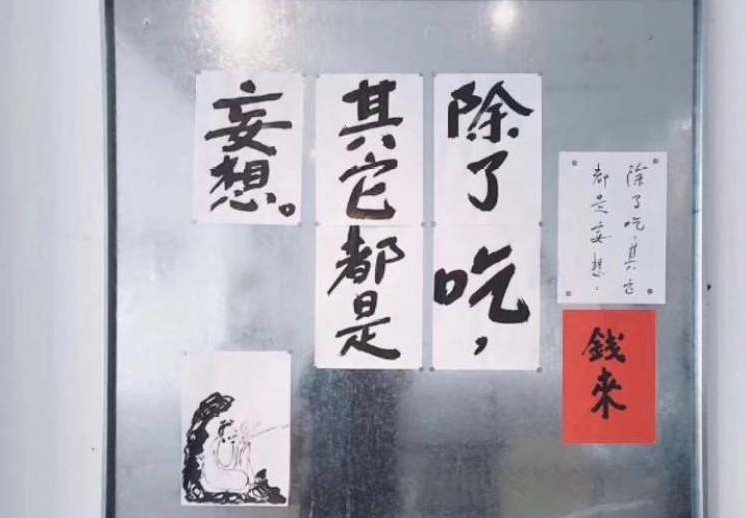 除了吃，
其它都是
妄想。
除了吃，其它
都是妄想，
錢來